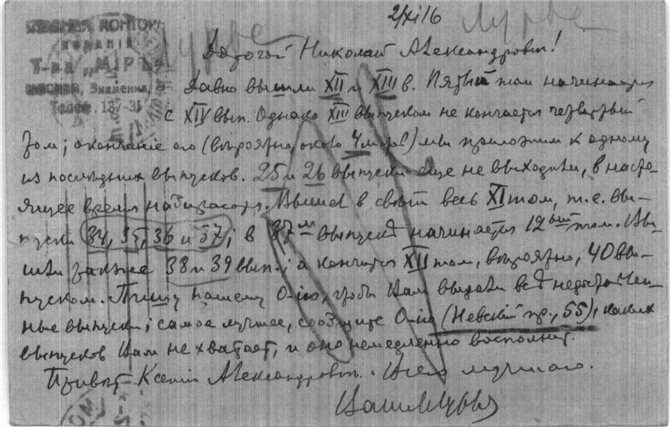 2/XI 16
Лурье
Главная контор
изданій
Т-ва „МІРЪ“
Москва, Знаменка, 9
Телеф. 137-31
Дорогой Николай Александрович!
Давно вышли XII и XIII в. Пятый том начинается
с XIV вып. Однако XIII выпуском не кончается четвертый
том; окончание его (вероятно, около 4 л.) мы приложим к одному
из последних выпусков. 25 и 26 выпуски еще не выходили, в насто-
ящее время набираются. Вышел в свет весь XI том, т.е. вы-
пуски 34, 35, 36 и 37; в 37м выпуске начинается 12 том. Вы-
шли также 38 и 39 вып.; а кончится XII том, вероятно, 40 вы-
пуском. Пишу нашему О-ию, чтобы Вам выдали все недостающие
выпуски; самое лучшее, сообщите О-ию (Невский пр., 55), каких
выпусков Вам не хватает, и оно немедленно восполнит.
Привет Ксении Александровне. Всего лучшего.
Ваш